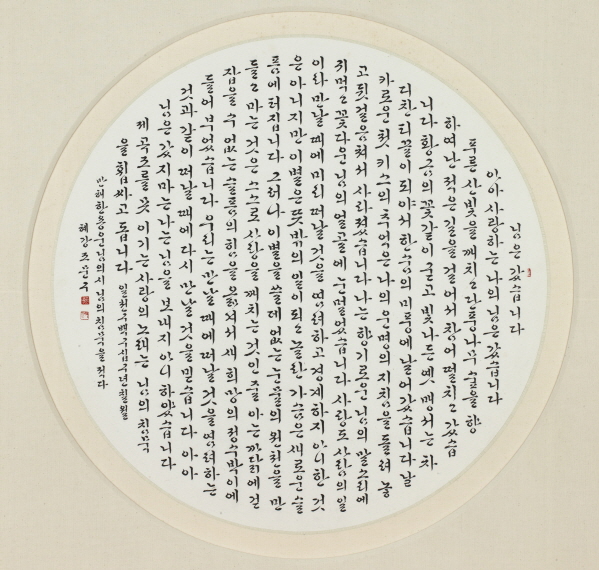 님은 갔습니다
아아 사랑하는 나의 님은 갔습니다
푸른 산빛을 깨치고 단풍나무 숲을 향
하여 난 적은 길을 걸어서 참어 떨치고 갔습
니다 황금의 꽃같이 굳고 빛나든 옛 맹서는 차
디찬 티끌이 되야서 한숨의 미풍에 날어갔습니다 날
카로운 첫 키스의 추억은 나의 운명의 지침을 돌려 놓
고 뒷걸음쳐서 사라졌습니다 나는 향기로운 님의 말소리에
귀먹고 꽃다운 님의 얼골에 눈멀었습니다 사랑도 사람의 일
이라 만날 때에 미리 떠날 것을 염려하고 경계하지 아니한 것
은 아니지만 이별은 뜻밖의 일이 되고 놀란 가슴은 새로운 슬
픔에 터집니다 그러나 이별을 쓸데없는 눈물의 원천을 만
들고 마는 것은 스스로 사랑을 깨치는 것인 줄 아는 까닭에 걷
잡을 수 없는 슬픔의 힘을 옮겨서 새 희망의 정수박이에
들어부었습니다 우리는 만날 때에 떠날 것을 염려하는
것과 같이 떠날 때에 다시 만날 것을 믿습니다 아아
님은 갔지마는 나는 님을 보내지 아니하였습니다
제 곡조를 못 이기는 사랑의 노래는 님의 침묵
을 휩싸고 돕니다 일천구백구십구년칠월
만해 한용운 님의 시 님의 침묵을 적다
혜강